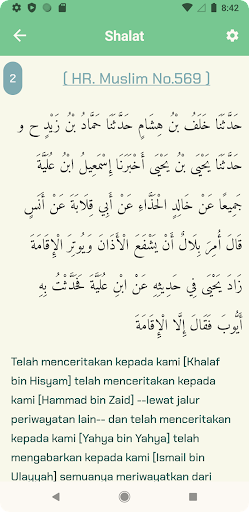 8:42
Shalat
2
[ HR. Muslim No.569 ]
حَدَّثَنَا خَلَفُ بْنُ هِشَامٍ حَدَّثَنَا حَمَّادُ بْنُ زَيْدٍ ح و
حَدَّثَنَا يَحْيَى بْنُ يَحْيَى أَخْبَرَنَا إِسْمَعِيلُ ابْنُ عُلَيَّةَ
جَمِيعًا عَنْ خَالِدٍ الْحَذَّاءِ عَنْ أَبِي قِلَابَةَ عَنْ أَنَسٍ
قَالَ أُمِرَ بِلَالٌ أَنْ يَشْفَعَ الْأَذَانَ وَيُوتِرَ الْإِقَامَةَ
زَادَ يَحْيَى فِي حَدِيثِهِ عَنْ ابْنِ عُلَيَّةَ فَحَدَّثْتُ بِهِ
أَيُّوبَ فَقَالَ إِلَّا الْإِقَامَةَ
Telah menceritakan kepada kami [Khalaf
bin Hisyam] telah menceritakan kepada
kami [Hammad bin Zaid] --lewat jalur
periwayatan lain-- dan telah menceritakan
kepada kami [Yahya bin Yahya] telah
mengabarkan kepada kami [Ismail bin
Ulayyah] semuanya meriwayatkan dari